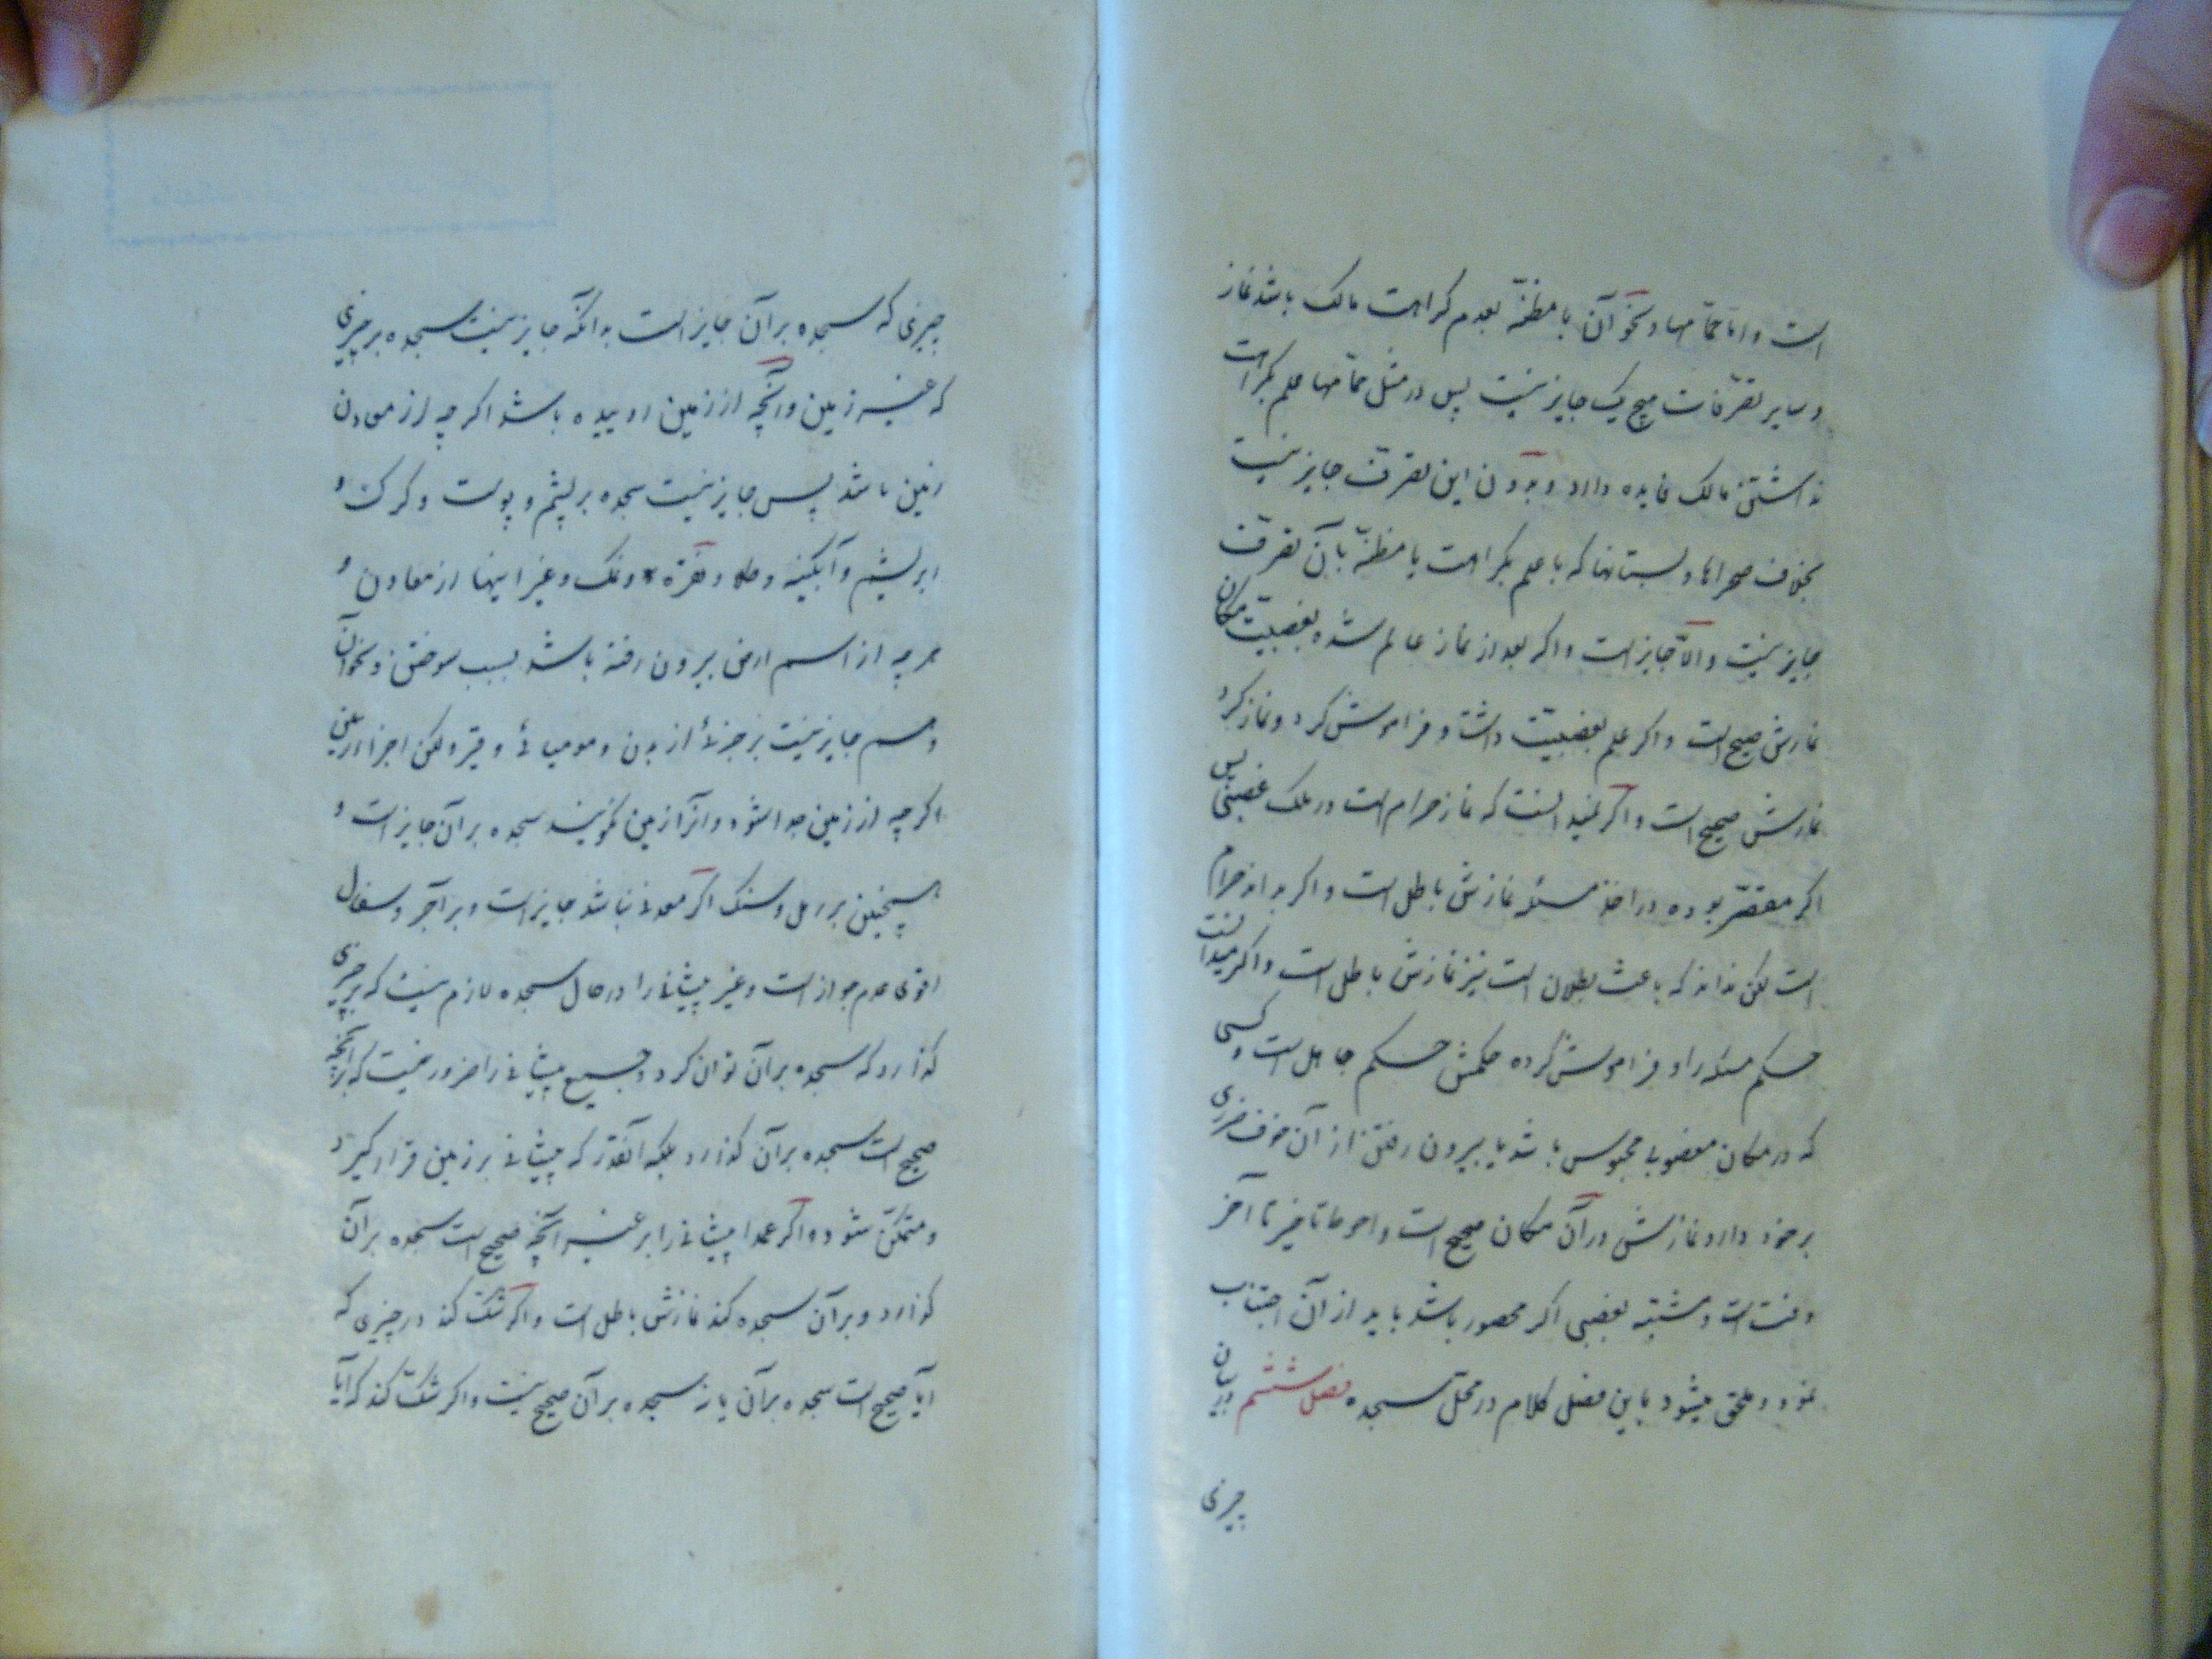 است و اما حمامها و نحو آن با مظنّه بعدم کراهت مالک باشد نماز
و سایر تصرفات هیچ یک جایز نیست پس در مثل حمامها علم بکراهت
نداشتن مالک فایده دارد و بدون این تصرف جایز نیست
بخلاف صحراها و بستانها که با علم بکراهت یا مظنّه بآن تصرف
جایز نیست و الّا جایز است و اگر بعد از نماز عالم شده بغصبیت مکان
نمازش صحیح است و اگر علم بغصبیت داشت و فراموش کرد و نماز کرد
نمازش صحیح است و اگر نمیدانست که نماز حرام است در ملک غصبی پس
اگر مقصّر بوده در اخذ مسئله نمازش باطل است و اگر بداند حرام
است لکن نداند که باعث بطلان است نیز نمازش باطل است و اگر میدانست
حکم مسئله را و فراموش کرده حکمش حکم جاهل است و کسی
که در مکان مغصوب محبوس باشد یا بیرون رفتن از آن خوف ضرری
بر خود دارد نمازش در آن مکان صحیح است و احوط تاخیر تا آخر
وقت است و مشتبه بغصبی اگر محصور باشد باید از آن اجتناب
نمود و ملحق میشود باین فصل کلام در محلّ سجده فصل ششم در بیان
چیزی
چیزی که سجده بر آن جایز است بدانکه جایز نیست سجده بر چیزی
که غیر زمین و آنچه از زمین روییده باشد اگر چه از معادن
زمین باشد پس جایز نیست سجده بر پشم و پوست و کرک و
ابریشم و آبگینه و طلا و نقره و نمک و غیر اینها از معادن و
هر چه از اسم ارض بیرون رفته باشد بسبب سوختن و نحو آن
و هم جایز نیست بر جزئی از بدن و مومیائی و قیر و لکن اجزاء زمین
اگر چه از زمین جدا شود و آنرا زمین نگویند سجده بر آن جایز است و
همچنین بر رمل و سنگ اگر معدنی نباشد جایز است و بر آجر و سفال
اقوی عدم جواز است و غیر پیشانی را در حال سجده لازم نیست که بر چیزی
گذارد که سجده بر آن توان کرد و جمیع پیشانی را ضرور نیست که بر آنچه
صحیح است سجده بر آن گذارد بلکه آنقدر که پیشانی بر زمین قرار گیرد
و متمکن شود و اگر عمدا پیشانی را بر غیر آنچه صحیح است سجده بر آن
گذارد و بر آن سجده کند نمازش باطل است و اگر شک کند در چیزی که
آیا صحیح است سجده بر آن یا نه سجده بر آن صحیح نیست و اگر شک کند که آیا